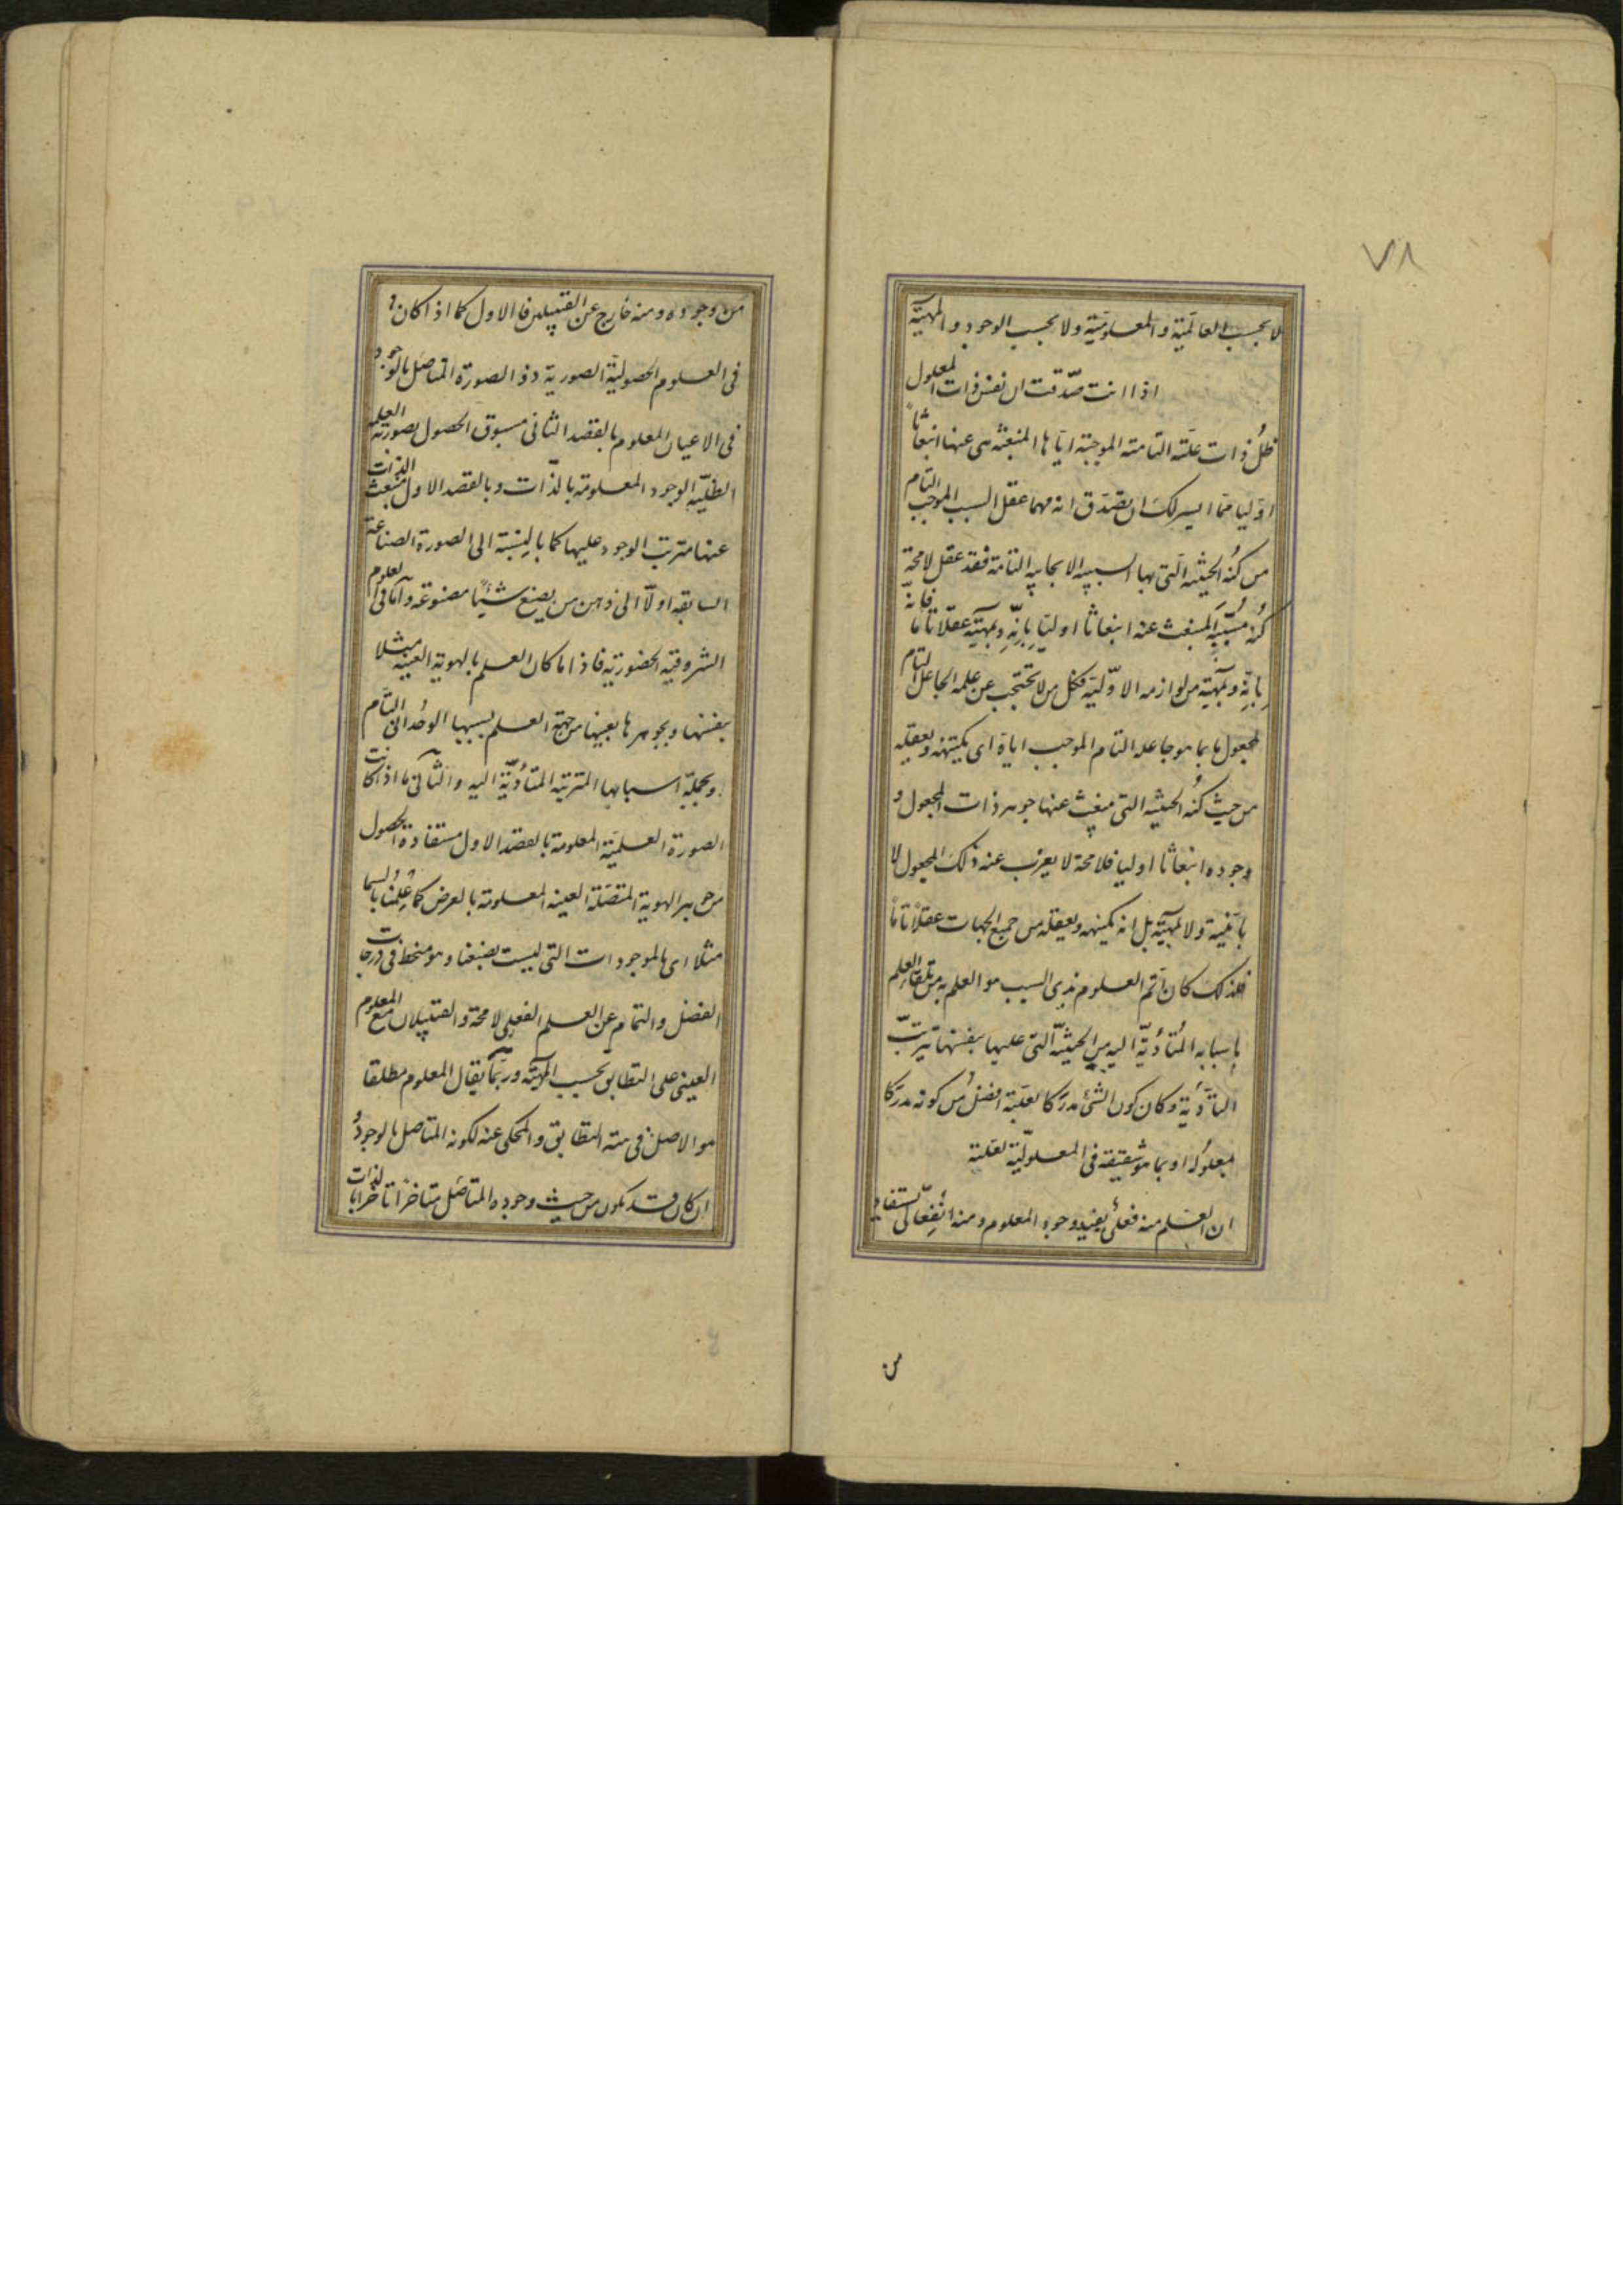 ٧٨
لا بحسب العالمیّة و المعلومیّة ولا بحسب الوجود و المهیّة
اذا انت صدّقت ان نفس ذات المعلول
ظلّ ذات علّته التامّة الموجبة ایّاها المنبعثة هی عنها انبعاثاً
اوّلیا فما ایسر لک ان تصدّق انه مهما عقل السبب الموجب التام
من کُنه الحیثیّه الّتی بها السببیّه الایجابیه التامّة فقد عقل لا محة
کُنه مُسبّبه المنبعث عنه انبعاثا اولیّا بِاِنّیّته و بمهیّته عقلا تامّا فانّه
بِاِنّیّته و بمهیّته من لوازمه الاوّلیّه فکل من لا یحتجب عن علمه الجاعل التام
لمجعول ما بما هو جاعله التام الموجب ایاه ای یکتنهه و یعقله
من حیث کُنه الحیثیه التی ینبعث عنها جوهر ذات المجعول و
وجوده انبعاثا اولیا فلا محة لا یعزب عنه ذلک المجعول لا
بانّیته ولا بمهیّته بل انه یکتنهه و یعقله من جمیع الجهات عقلاً تامّاً
فلذلک کان اتم العلوم بذی السبب هو العلم به من تلقاءِ العلم
باسبابه المُتأدّیّة الیه من الحیثیّة الّتی علیها بنفسها ترتّب
التأدّیة و کان کون الشئ مدرَکا بعلّته افضل من کونه مدرَکا
بمعلوله او بما هو شقیقه فی المعلولیّة لعلته
ان العلم منه فعلیّ یفید وجود المعلوم و منه انفعالیّ یستفاد
من
من وجوده و منه خارج عن القبیلین فالاول کما اذا کان
فی العلوم الحصولیّة الصوریة ذو الصورة المتاصّل بالوجود
فی الاعیان المعلوم بالقصد الثانی مسبوق الحصول بصورته العلمیه
الظلیّه الوجود المعلومة بالذّات و بالقصد الاول منبعث الذات
عنها مترتب الوجود علیها کما بالنسبة الی الصورة الصناعیة
السابقة اولّا الی ذهن من یصنع شیئاً مصنوعه و امّا فی العلوم
الشروقیّه الحضوریّه فاذا ما کان العلم بالهویة العینیه مثلا
بنفسها و بجوهرها بعینها من جهة العلم بسببها الوحُدانی التام
و بجملة اسبابها المترتبة المتأدّیّة الیه و الثانی ما اذا کانت
الصورة العلمیّة المعلومة بالقصد الاول مستفادة الحصول
من جوهر الهویة المتصّلة العینیه المعلومة بالعرض کما عِلمُنا بالسما
مثلا ای بالموجودات التی لیست بصنعنا و هو منحط فی درجات
الفضل و التمام عن العلم الفعلی لا محة و القبیلان مع المعلوم
العینی علی التطابق بحسب المهیّة و ربّما یقال المعلوم مطلقا
هو الاصل فی هیئة التطابق و المحکی عنه لکونه المتاصل بالوجود
ان کان قد یکون من حیث وجوده المتاصّل متاخراً تاخرا بالذات